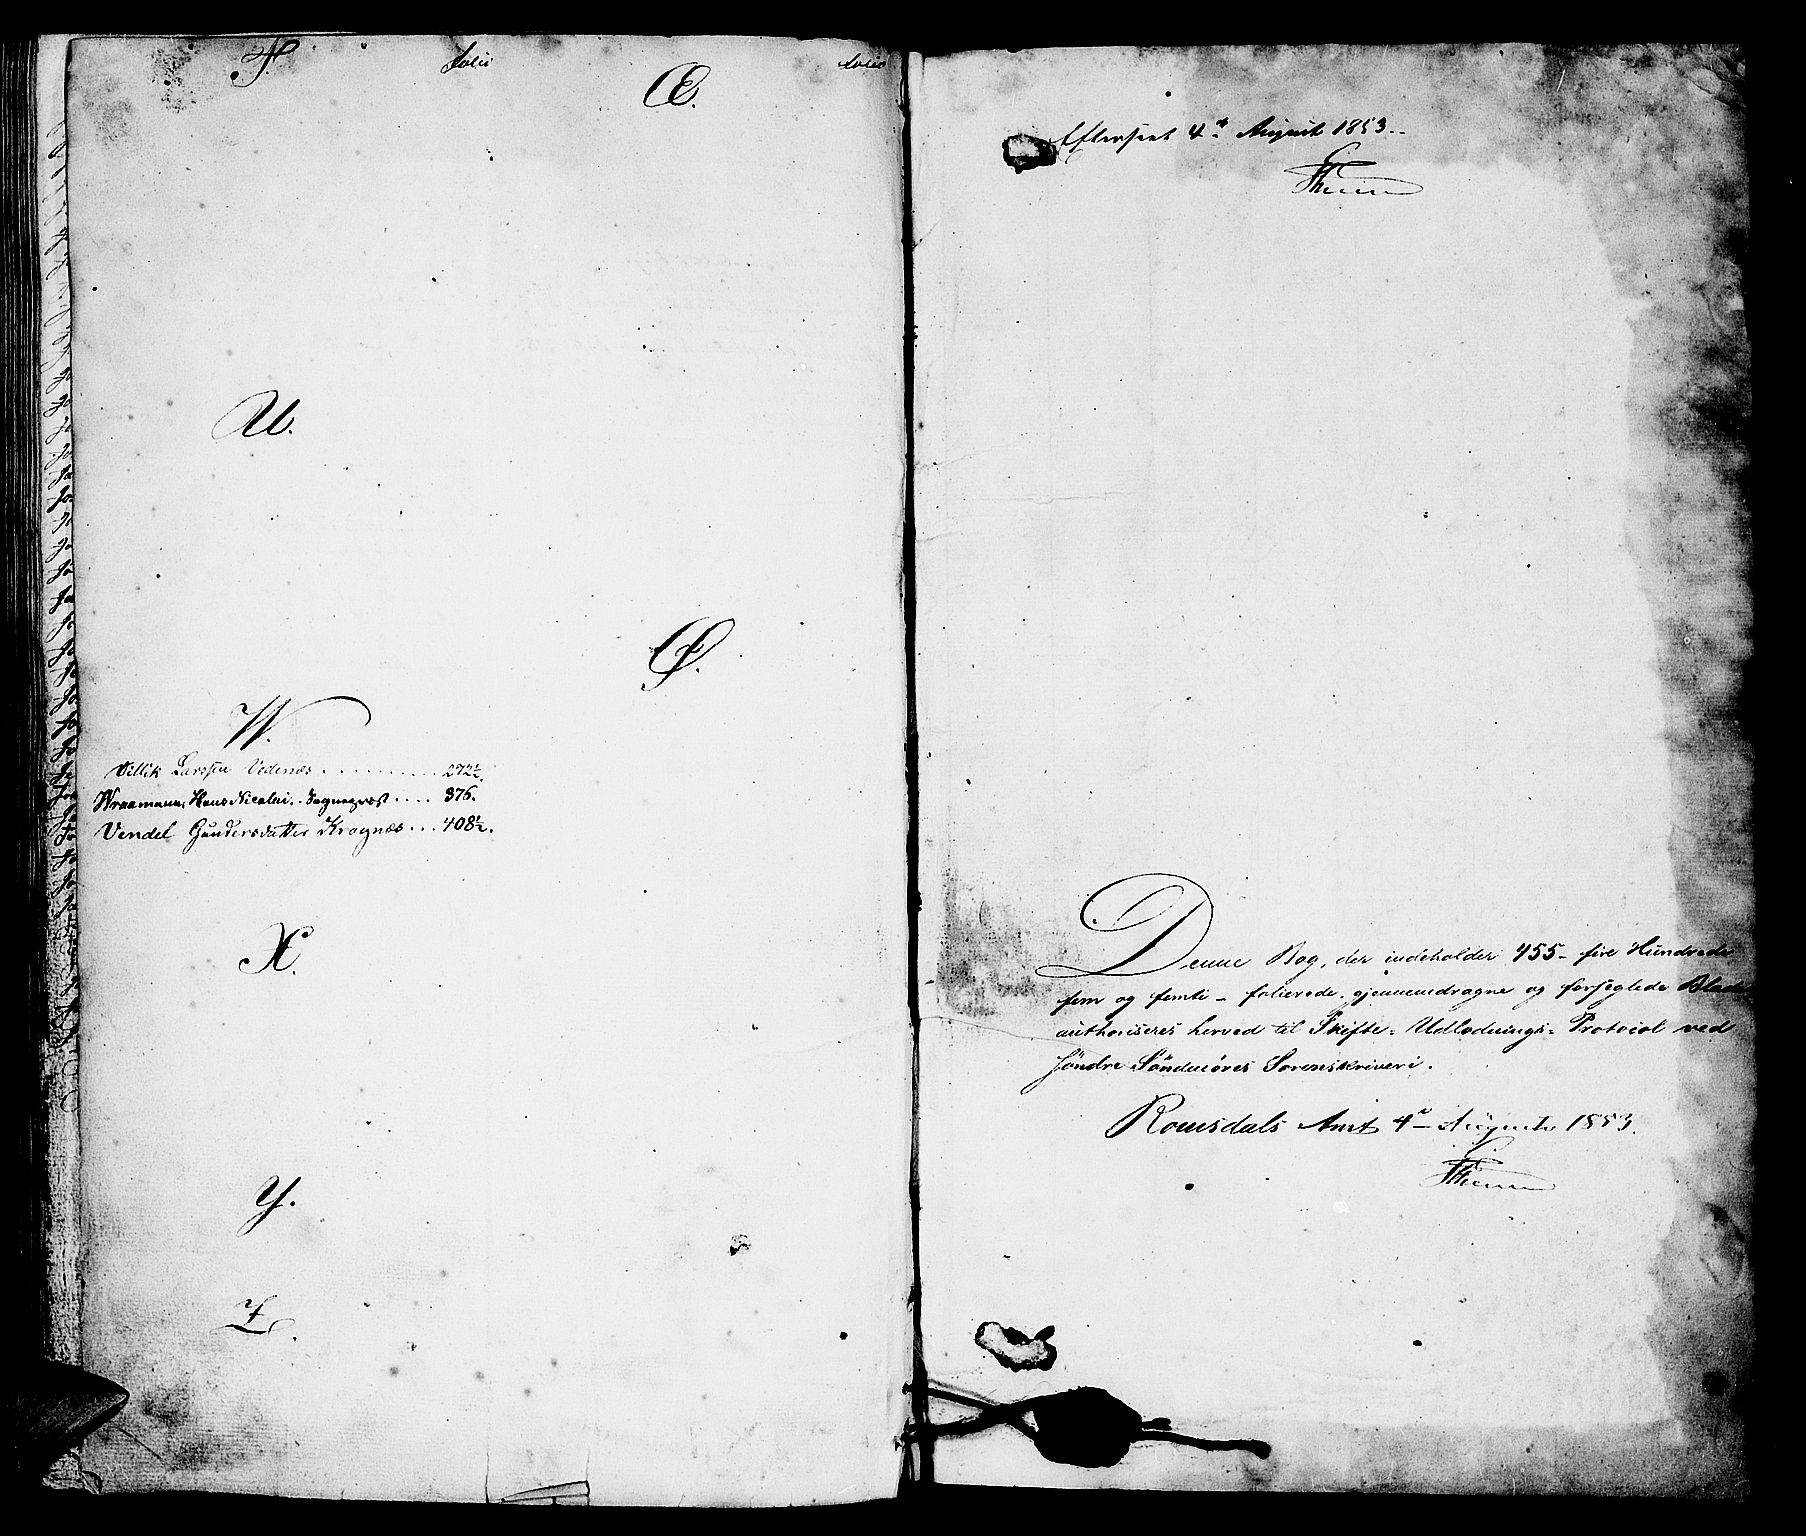 T.
folio
folio
Æ.
U.
Ø.
W.
Villik Larssen Vedenæs . . . . . . . . . . 272½.
Wraamann, Hans Nicolai. Sogneprest . . . . 376.
Vendel Gundersdatter Krognæs . . . 408½.
X.
Y.
Z.
Efterseet 4de August 1853.
Thesen
Denne Bog, der indeholder 455 - fire Hundrede
fem og femti - folierede, gjennemdragne og forseglede Blade
authoriseres herved til Skifte-Udlodnings-Protocol ved
Søndre Søndmøres Sorenskriveri.
Romsdals Amt 4de August 1853.
Thesen